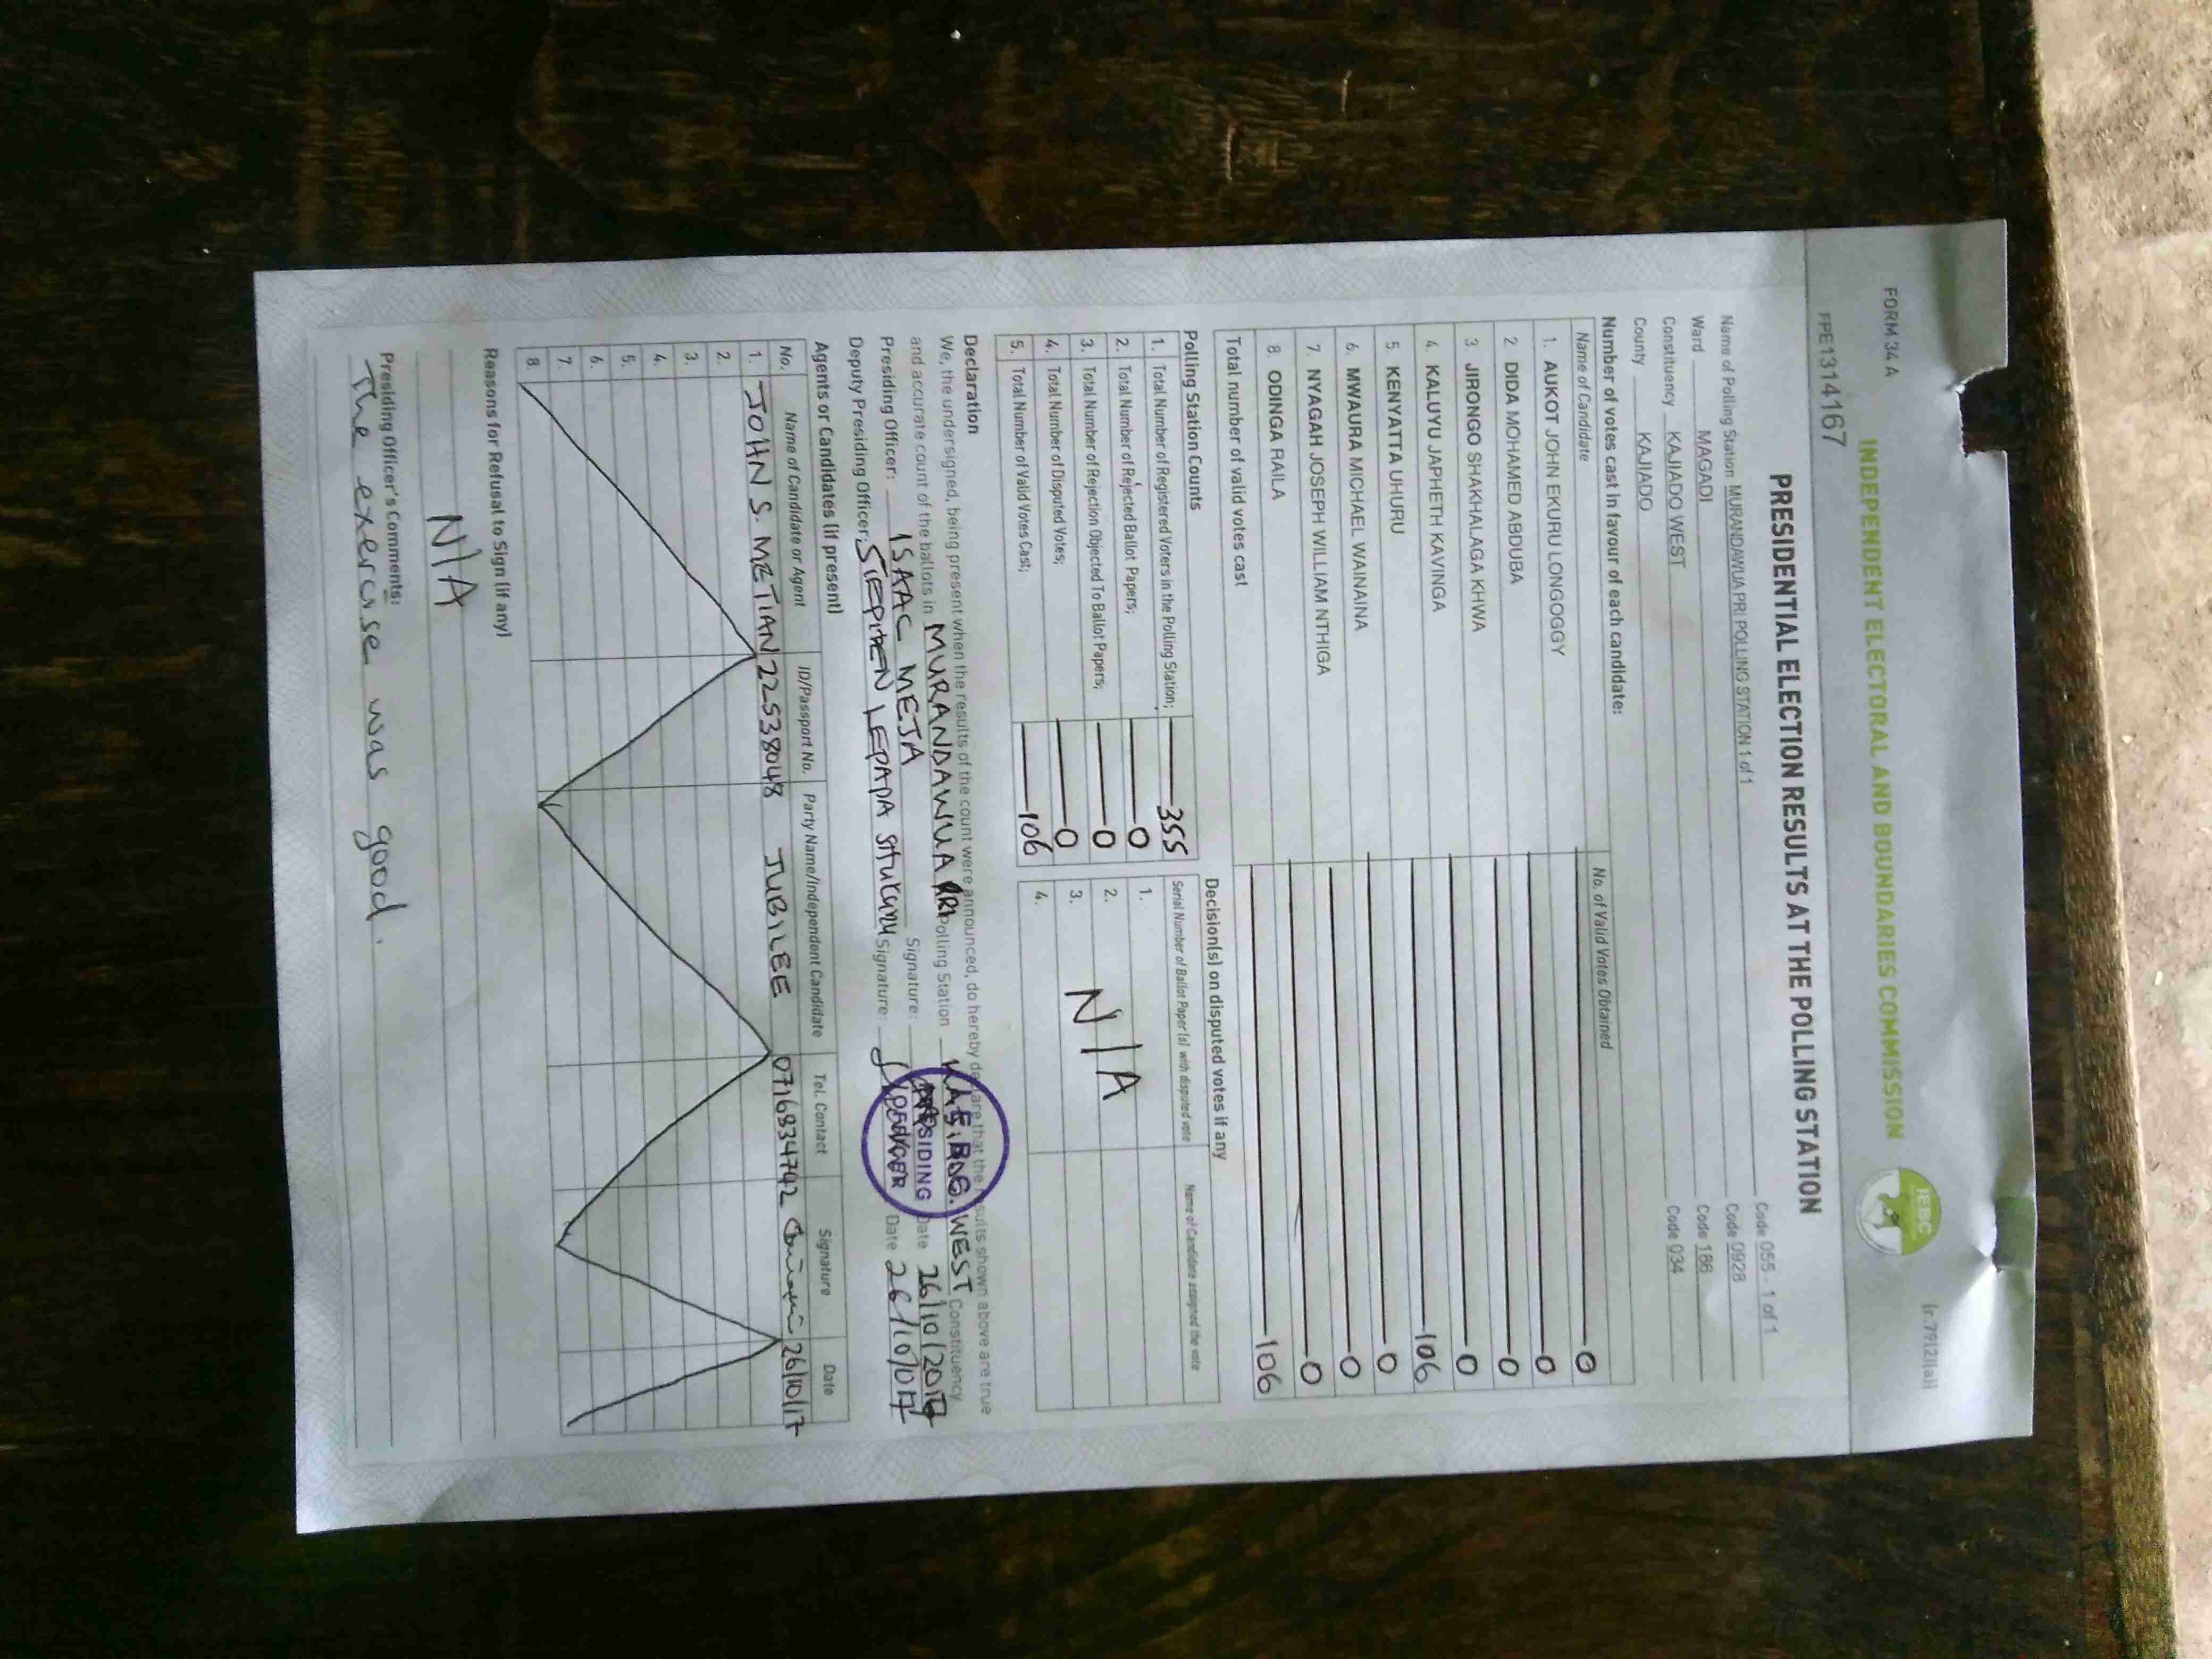 FORM 34A
(r.79(2)(a))
INDEPENDENT ELECTORAL AND BOUNDARIES COMMISSION
IEBC
FPE1314167
PRESIDENTIAL ELECTION RESULTS AT THE POLLING STATION
Name of Polling Station MURANDAWUA PRI POLLING STATION 1 of 1 Code 055 1 of 1
Ward MAGADI Code 0928
Constituency KAJIADO WEST Code 186
County KAJIADO Code 034
Number of votes cast in favour of each candidate:
Name of Candidate No. of Valid Votes Obtained
1. AUKOT JOHN EKURU LONGOGGY 0
2. DIDA MOHAMED ABDUBA 0
3. JIRONGO SHAKHALAGA KHWA 0
4. KALUYU JAPHETH KAVINGA 0
5. KENYATTA UHURU 106
6. MWAURA MICHAEL WAINAINA 0
7. NYAGAH JOSEPH WILLIAM NTHIGA 0
8. ODINGA RAILA 0
Total number of valid votes cast 106
Polling Station Counts
1. Total Number of Registered Voters in the Polling Station; 355
2. Total Number of Rejected Ballot Papers; 0
3. Total Number of Rejection Objected To Ballot Papers; 0
4. Total Number of Disputed Votes; 0
5. Total Number of Valid Votes Cast; 106
Decision(s) on disputed votes if any
Serial Number of Ballot Paper(s) with disputed vote Name of Candidate assigned the vote
1.
2.
3.
4.
N/A
Declaration
We, the undersigned, being present when the results of the count were announced, do hereby declare that the results shown above are true
and accurate count of the ballots in MURANDAWUA PRI Polling Station WEST Constituency
Presiding Officer: ISAAC MEJA Signature: Date 26/10/2017
Deputy Presiding Officer: STEPHEN LEPAPA Signature: Date 26/10/017
PRESIDING
Agents or Candidates (if present)
No. Name of Candidate or Agent ID/Passport No. Party Name/Independent Candidate Tel. Contact Signature Date
1. JOHN S. METIAN 22538048 JUBILEE 0716834742 26/10/17
2.
3.
4.
5.
6.
7.
8.
Reasons for Refusal to Sign (if any)
N/A
Presiding Officer's Comments:
The exercise was good.